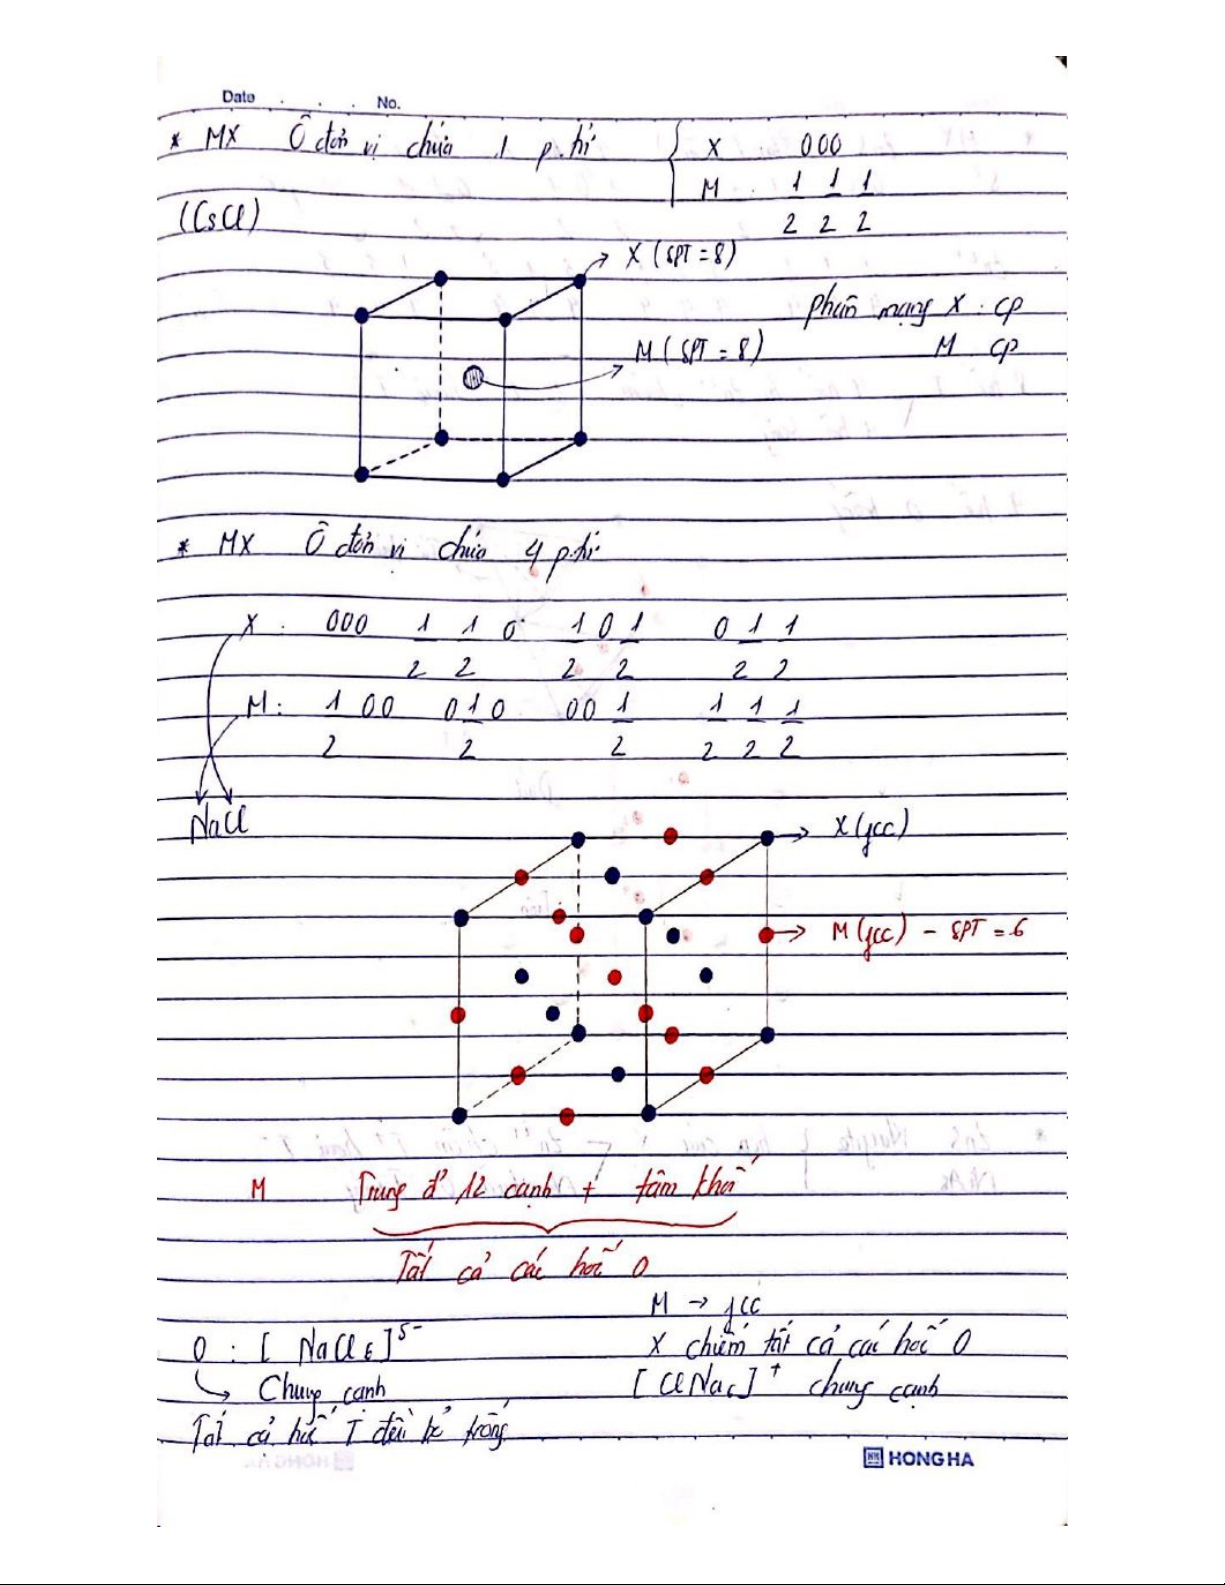 Date . . . No.
* MX Ô đơn vị chứa 1 p.tử { X : 000
M : 1/2 1/2 1/2
(CsCl)
X (SPT = 8)
phân mạng X : CP
M (SPT = 8) M CP
* MX Ô đơn vị chứa 4 p.tử
X : 000 1/2 1/2 0 1/2 0 1/2 0 1/2 1/2
M : 1/2 00 0 1/2 0 00 1/2 1/2 1/2 1/2
NaCl
X (fcc)
M (fcc) - SPT = 6
M Trung đ' 12 cạnh + tâm khối
Tất cả các hốc O
M → fcc
O : [NaCl6]5- X chiếm tất cả các hốc O
↳ Chung cạnh [ClNa6]+ chung cạnh
Tất cả hốc T đều bỏ trống
HONG HA